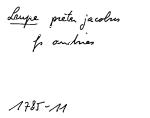 Lampe pieter jacobus
fs andries
1785-11